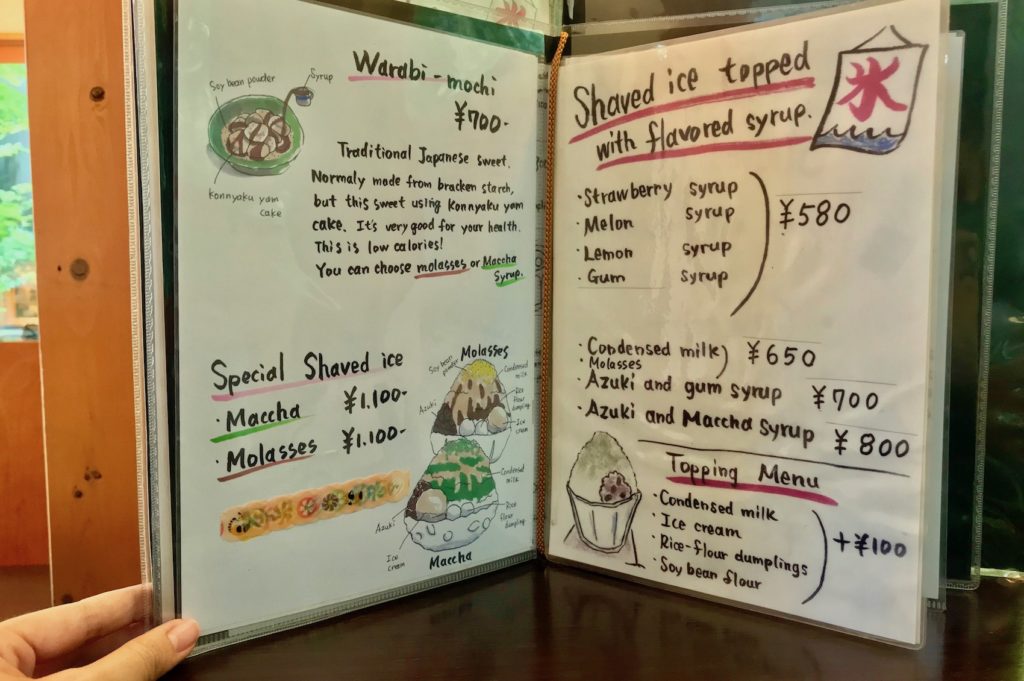 Warabi-mochi
¥700-
Soy bean powder
Syrup
Konnyaku yam
cake
Traditional Japanese sweet.
Normaly made from bracken starch,
but this sweet using Konnyaku yam
cake. It's very good for your health.
This is low calories!
You can choose molasses or Maccha
Syrup.
Special Shaved ice
・Maccha ¥1.100-
・Molasses ¥1.100-
Molasses
Soy bean
powder
Condensed
milk
Azuki
Rice
flour
dumpling
Ice
cream
Condensed
milk
Azuki
Rice
flour
dumpling
Ice
cream
Maccha
Shaved ice topped
with flavored syrup.
氷
・Strawberry syrup
・Melon syrup
・Lemon syrup
・Gum syrup
¥580
・Condensed milk
・Molasses
¥650
・Azuki and gum syrup ¥700
・Azuki and Maccha Syrup ¥800
Topping Menu
・Condensed milk
・Ice cream
・Rice-flour dumplings
・Soy bean flour
+¥100